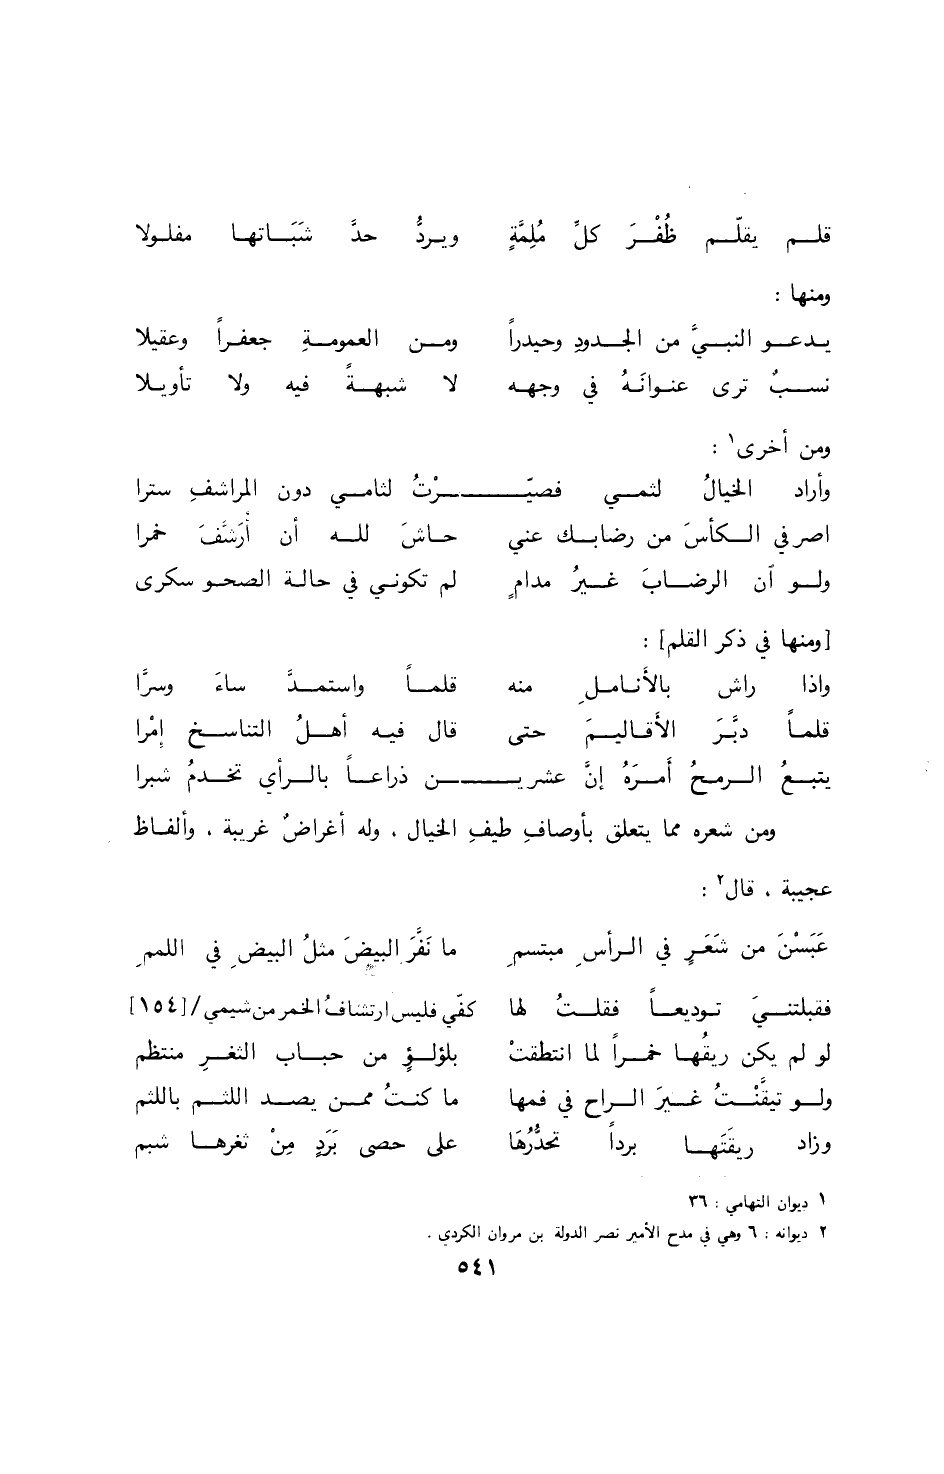 قلم يقلّم ظُفْرَ كلِّ مُلِمَّةٍ ويردُّ حدَّ شَبَاتها مفلولا
ومنها :
يدعو النبيَّ من الجدودِ وحيدراً ومن العمومةِ جعفراً وعقيلا
نسبٌ ترى عنوانَهُ في وجهه لا شبهةً فيه ولا تأويلا
ومن أخرى١ :
وأراد الخيالُ لثمي فصيّرْتُ لثامي دون المراشفِ سترا
اصرفي الكأسَ من رضابك عني حاشَ لله أن أرَشَّفَ خمرا
ولو أن الرضابَ غيرُ مدامٍ لم تكوني في حالة الصحو سكرى
[ومنها في ذكر القلم] :
واذا راش بالأناملِ منه قلماً واستمدَّ ساءَ وسرَّا
قلماً دبَّرَ الأقاليمَ حتى قال فيه أهلُ التناسخ إمْرا
يتبعُ الرمحُ أمرَهُ إنَّ عشرين ذراعاً بالرأي تخدمُ شبرا
ومن شعره مما يتعلق بأوصافِ طيفِ الخيال ، وله أغراضٌ غريبة ، وألفاظ
عجيبة ، قال٢ :
عَبَسْنَ من شَعَرٍ في الرأسِ مبتسمِ ما نَفَّرَ البيضَ مثلُ البيضِ في اللممِ
فقبلتنيَ توديعاً فقلتُ لها كفّي فليس ارتشافُ الخمر من شيمي /[١٥٤]
لو لم يكن ريقُها خمراً لما انتطقتْ بلؤلؤٍ من حباب الثغرِ منتظم
ولو تيقَّنْتُ غيرَ الراح في فمها ما كنتُ ممن يصد اللثم باللثم
وزاد ريقَتَها برداً تحدُّرُهَا على حصى بَرَدٍ مِنْ ثغرها شبم
١ ديوان التهامي : ٣٦
٢ ديوانه : ٦ وهي في مدح الأمير نصر الدولة بن مروان الكردي .
٥٤١